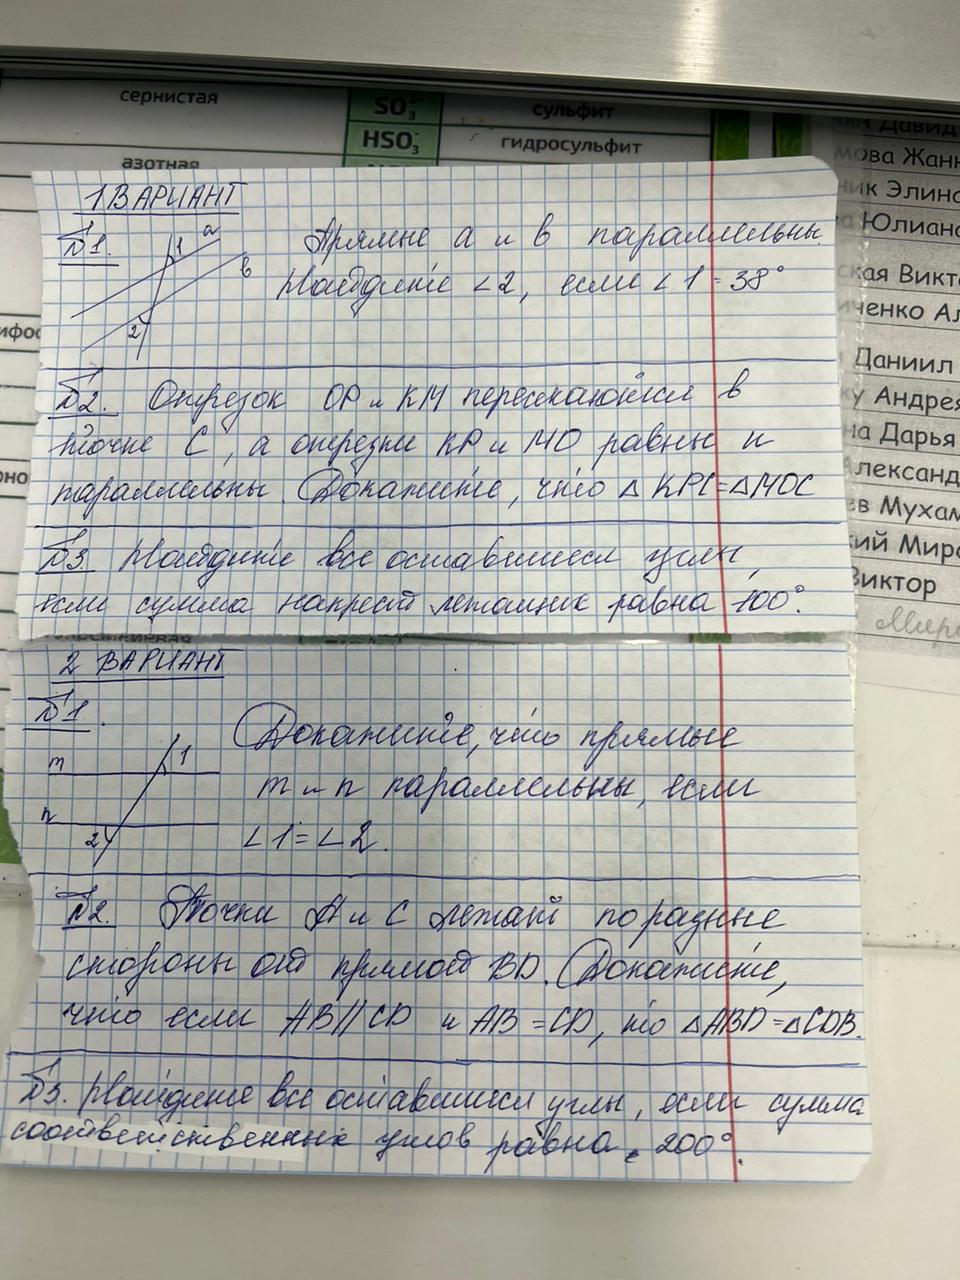 сернистая
SO₃²⁻
сульфит
HSO₃⁻
гидросульфит
азотная
Давид
мова Жанн
ник Элина
Юлиана
ская Викт
иченко Ал
Даниил
у Андрея
на Дарья
Александ
ев Мухам
кий Миро
Виктор
1 ВАРИАНТ
№1.
a
1
b
2
Прямые a и b параллельны
Найдите ∠2, если ∠1 = 38°
№2. Отрезок OP и KM пересекаются в
точке C, а отрезки KP и MO равны и
параллельны. Докажите, что △KPC=△MOC
№3. Найдите все оставшиеся углы,
если сумма накрест лежащих равна 100°.
2 ВАРИАНТ
№1.
m
1
n
2
Докажите, что прямые
m и n параллельны, если
∠1=∠2.
№2. Точки A и C лежат по разные
стороны от прямой BD. Докажите,
что если AB || CD и AB = CD, то △ABD = △CDB.
№3. Найдите все оставшиеся углы, если сумма
соответственных углов равна 200°.